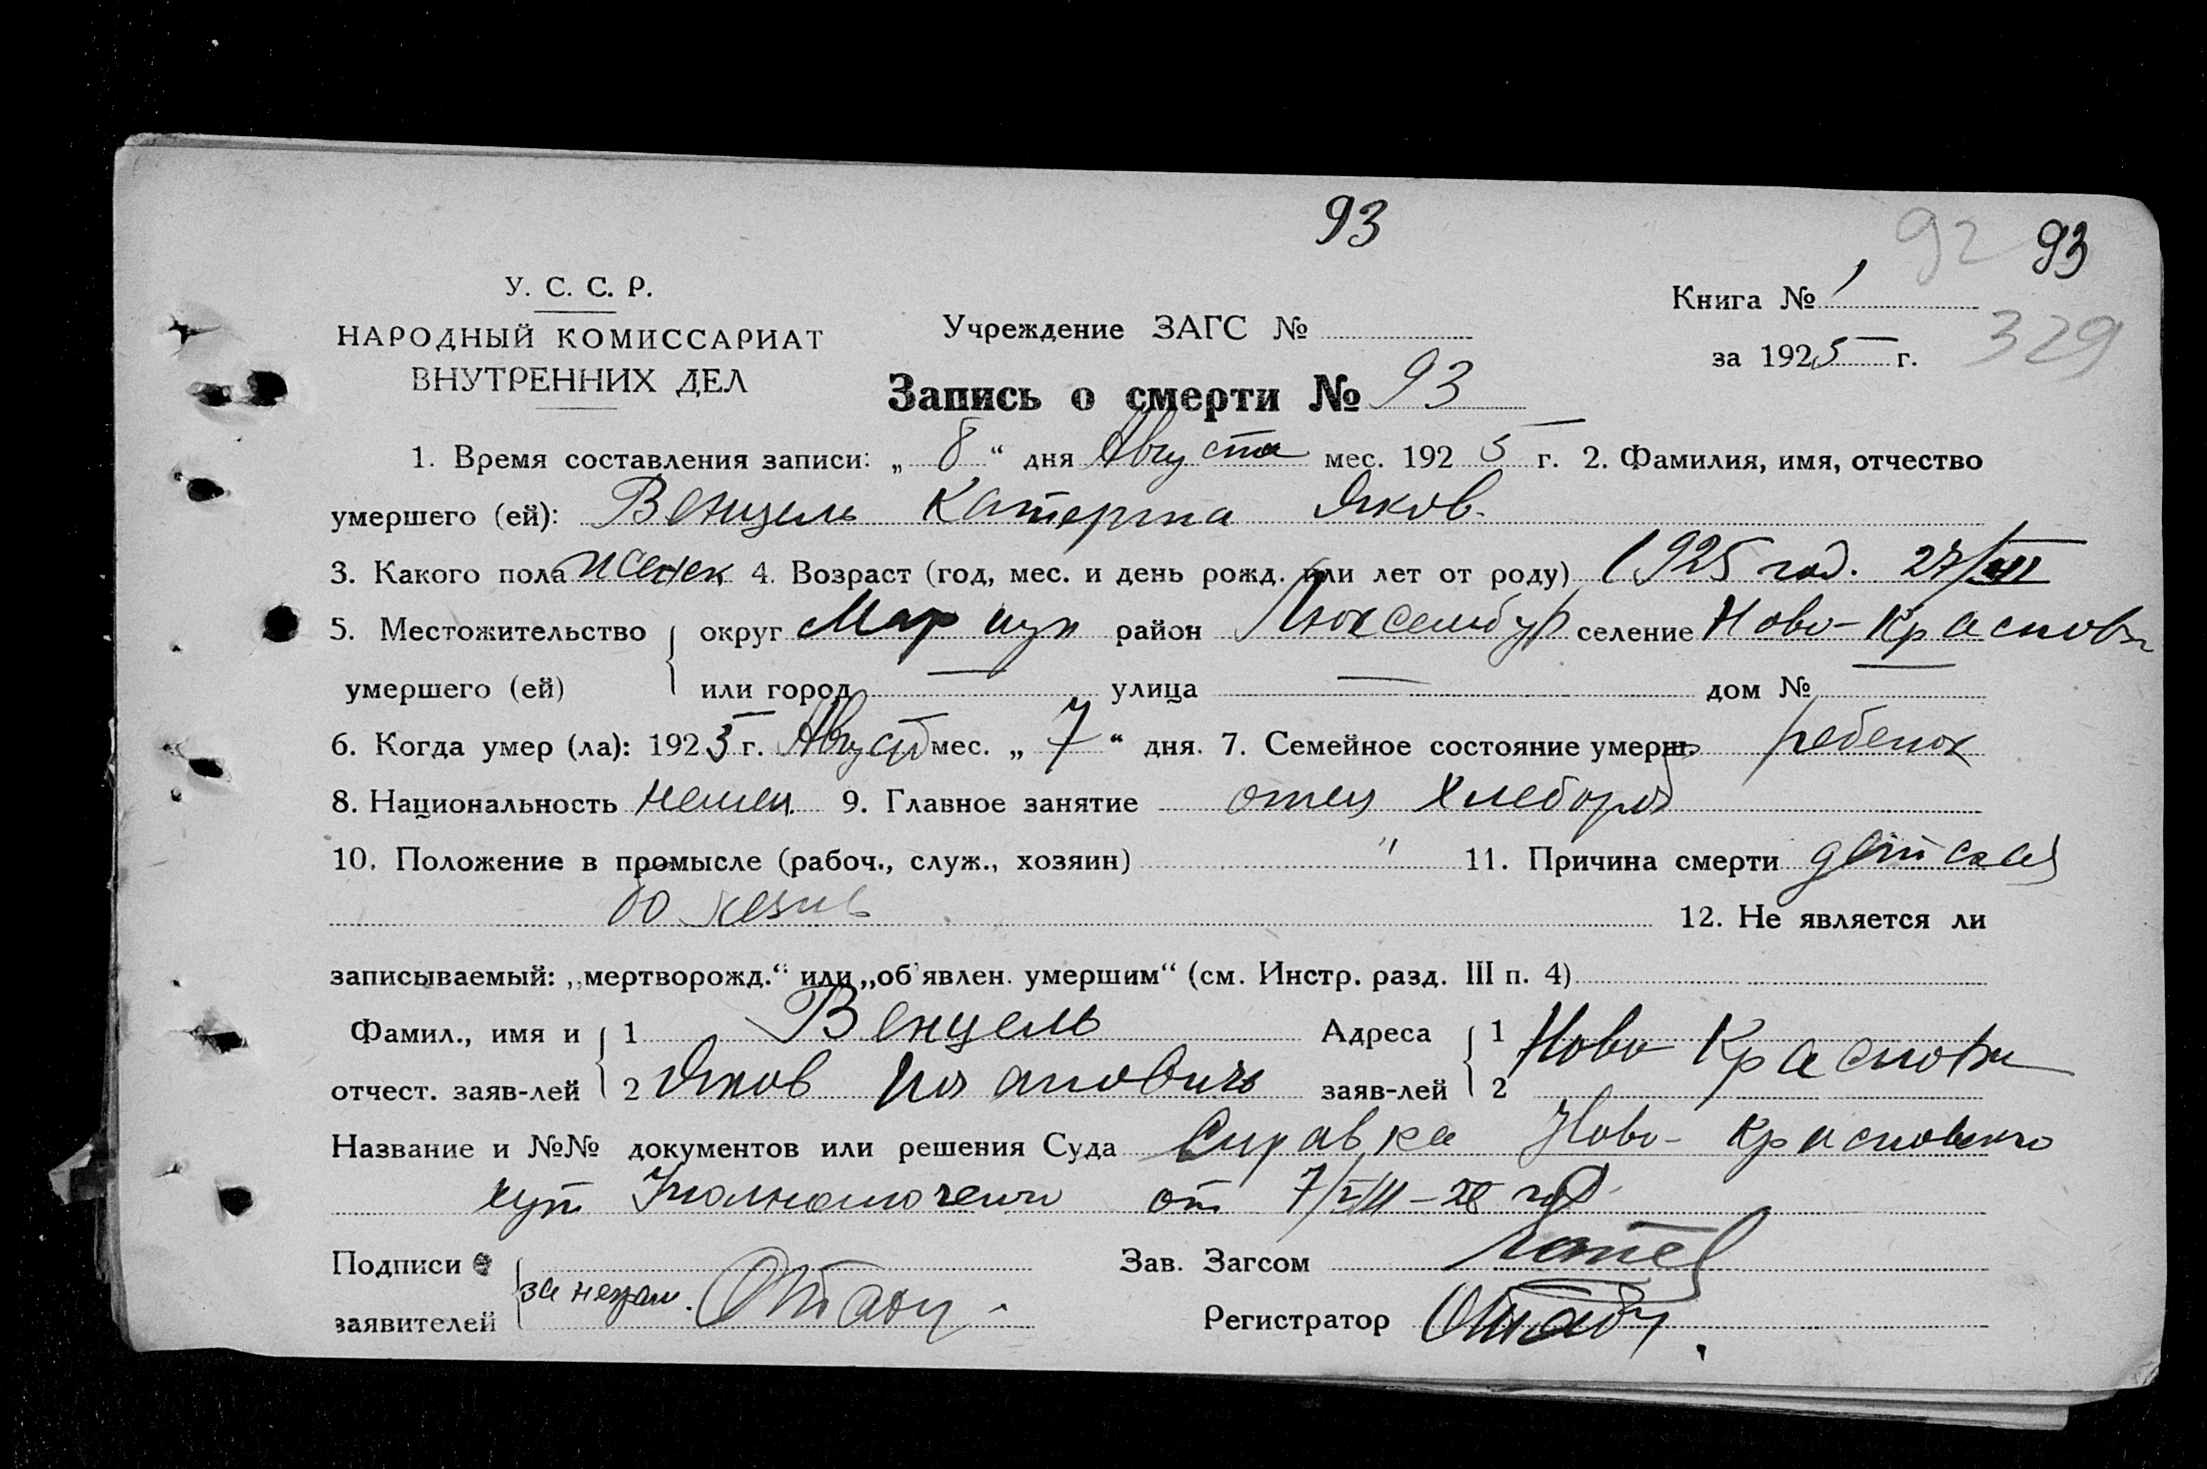 93
92 93
У. С. С. Р.
Книга № 1
НАРОДНЫЙ КОМИССАРИАТ
Учреждение ЗАГС №
за 1925 г. 329
ВНУТРЕННИХ ДЕЛ
Запись о смерти № 93
1. Время составления записи: „ 8 “ дня Августа мес. 1925 г. 2. Фамилия, имя, отчество
умершего (ей): Венцель Катерина Яков.
3. Какого пола женск 4. Возраст (год, мес. и день рожд. или лет от роду) 1925 год. 27/
5. Местожительство округ Мариуп район Люксембур селение Ново-Красновк
умершего (ей) или город — улица — дом № —
6. Когда умер (ла): 1925 г. Август мес. „ 7 “ дня. 7. Семейное состояние умерш. ребенок
8. Национальность немец. 9. Главное занятие отец хлебороб
10. Положение в промысле (рабоч., служ., хозяин) " 11. Причина смерти детская
болезнь 12. Не является ли
записываемый: „мертворожд.“ или „об'явлен. умершим“ (см. Инстр. разд. III п. 4)
Фамил., имя и 1 Венцель Адреса 1 Ново Красновк
отчест. заяв-лей 2 Яков заяв-лей 2
Название и №№ документов или решения Суда Справка Ново-Красновского
от 7/VIII-
Подписи Зав. Загсом
за неграм.
заявителей Регистратор